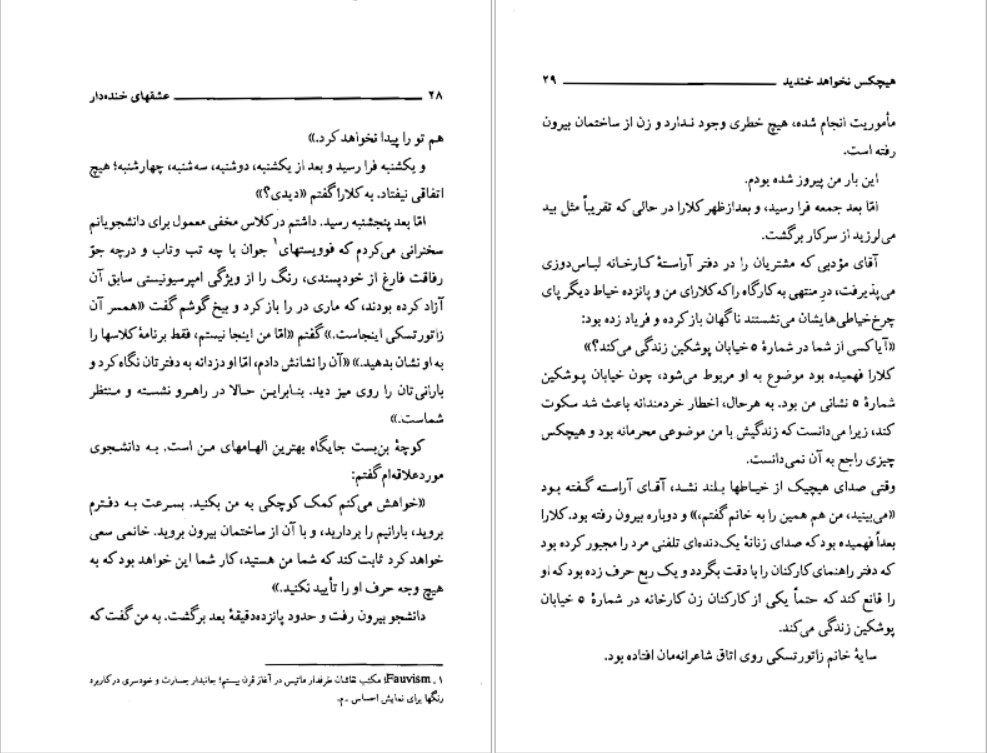 ۲۸ عشقهای خنده‌دار
هم تو را پیدا نخواهد کرد.»
و یکشنبه فرا رسید و بعد از یکشنبه، دوشنبه، سه‌شنبه، چهارشنبه؛ هیچ
اتفاقی نیفتاد. به کلارا گفتم «دیدی؟»
امّا بعد پنجشنبه رسید. داشتم در کلاس مخفی معمول برای دانشجویانم
سخنرانی می‌کردم که فوویستهای۱ جوان با چه تب وتاب و درچه جوّ
رفاقت فارغ از خودپسندی، رنگ را از ویژگی امپرسیونیستی سابق آن
آزاد کرده بودند، که ماری در را باز کرد و بیخ گوشم گفت «همسر آن
زاتورتسکی اینجاست.» گفتم «امّا من اینجا نیستم، فقط برنامهٔ کلاسها را
به او نشان بدهید.» «آن را نشانش دادم، امّا او دزدانه به دفترتان نگاه کرد و
بارانی‌تان را روی میز دید. بنابراین حالا در راهرو نشسته و منتظر
شماست.»
کوچهٔ بن‌بست جایگاه بهترین الهامهای من است. به دانشجوی
موردعلاقه‌ام گفتم:
«خواهش می‌کنم کمک کوچکی به من بکنید. بسرعت به دفترم
بروید، بارانیم را بردارید، و با آن از ساختمان بیرون بروید. خانمی سعی
خواهد کرد ثابت کند که شما من هستید، کار شما این خواهد بود که به
هیچ وجه حرف او را تأیید نکنید.»
دانشجو بیرون رفت و حدود پانزده‌دقیقهٔ بعد برگشت. به من گفت که
۱. Fauvism؛ مکتب نقاشان طرفدار ماتیس در آغاز قرن بیستم؛ جانبدار جسارت و خودسری در کاربرد
رنگها برای نمایش احساس ـ م.
هیچکس نخواهد خندید ۲۹
مأموریت انجام شده، هیچ خطری وجود ندارد و زن از ساختمان بیرون
رفته است.
این بار من پیروز شده بودم.
امّا بعد جمعه فرا رسید، و بعدازظهر کلارا در حالی که تقریباً مثل بید
می‌لرزید از سرکار برگشت.
آقای مؤدبی که مشتریان را در دفتر آراستهٔ کارخانه لباس‌دوزی
می‌پذیرفت، درِ منتهی به کارگاه را که کلارای من و پانزده خیاط دیگر پای
چرخ‌خیاطی‌هایشان می‌نشستند ناگهان باز کرده و فریاد زده بود:
«آیا کسی از شما در شمارهٔ ۵ خیابان پوشکین زندگی می‌کند؟»
کلارا فهمیده بود موضوع به او مربوط می‌شود، چون خیابان پوشکین
شمارهٔ ۵ نشانی من بود. به هرحال، اخطار خردمندانه باعث شد سکوت
کند، زیرا می‌دانست که زندگیش با من موضوعی محرمانه بود و هیچکس
چیزی راجع به آن نمی‌دانست.
وقتی صدای هیچیک از خیاطها بلند نشد، آقای آراسته گفته بود
«می‌بینید، من هم همین را به خانم گفتم،» و دوباره بیرون رفته بود. کلارا
بعداً فهمیده بود که صدای زنانهٔ یک‌دنده‌ای تلفنی مرد را مجبور کرده بود
که دفتر راهنمای کارکنان را با دقت بگردد و یک ربع حرف زده بود که او
را قانع کند که حتماً یکی از کارکنان زن کارخانه در شمارهٔ ۵ خیابان
پوشکین زندگی می‌کند.
سایهٔ خانم زاتورتسکی روی اتاق شاعرانه‌مان افتاده بود.